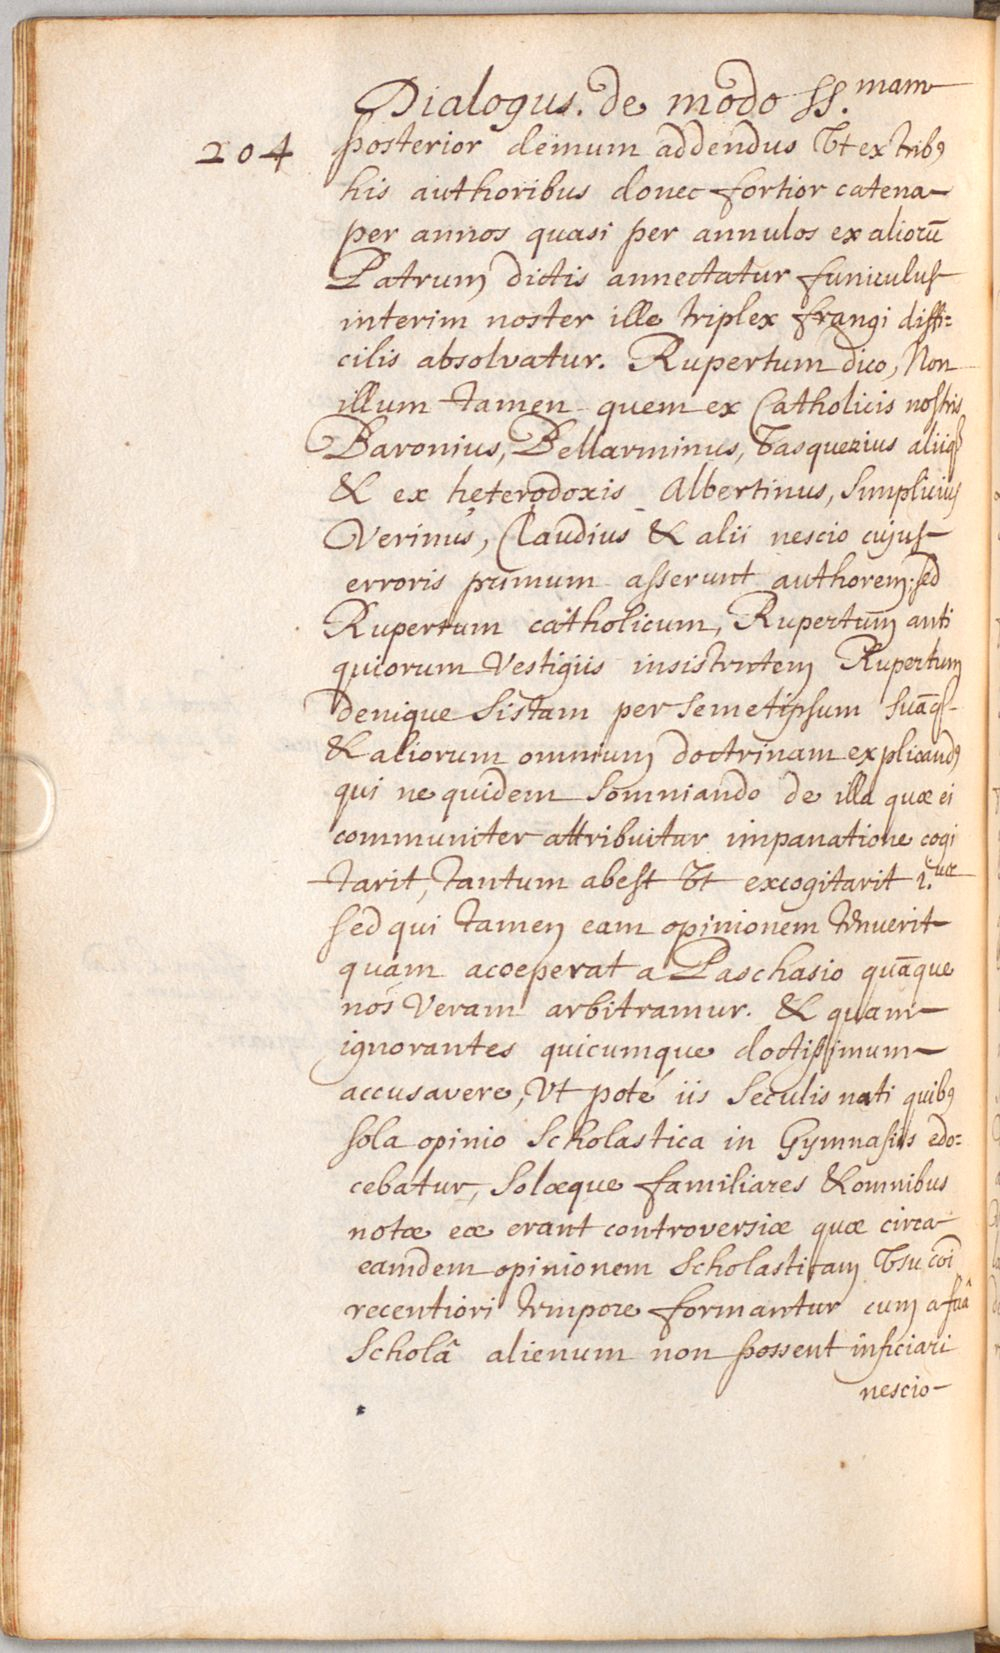 Dialogus. de modo SS.mam
204
posterior demum addendus Vt ex tribꝰ
his authoribus donec fortior catena
per annos quasi per annulos ex aliorū
Patrum dictis annectatur funiculus
interim noster ille triplex frangi diffi=
cilis absolvatur. Rupertum dico, Non
illum tamen quem ex Catholicis nostris
Baronius, Bellarminus, Vasquezius aliiqꝫ
& ex heterodoxis Albertinus, Simplicius
Verinus, Claudius & alii nescio cujus
erroris primum asserunt authorem. sed
Rupertum catholicum, Rupertum anti
quiorum Vestigiis insistentem Rupertum
denique Sistam per semetipsum suāqꝫ
& aliorum omnium doctrinam explicandꝰ
qui ne quidem Somniando de illa quæ ei
communiter attribuitur impanatione cogi
tarit, tantum abest Vt excogitarit
sed qui tamen eam opinionem tenuerit
quàm acceperat a Paschasio quāque
nos Veram arbitramur. & quam
ignorantes quicumque doctissimum
accusavere, Vt poté iis Seculis nati quibꝰ
sola opinio Scholastica in Gymnasiis edo=
cebatur, Solæque familiares & omnibus
notæ eæ erant controversiæ quæ circa
eamdem opinionem Scholasticam Vsu cōi
recentiori tempore formantur cum a suâ
Scholâ alienum non possent inficiari
nescio